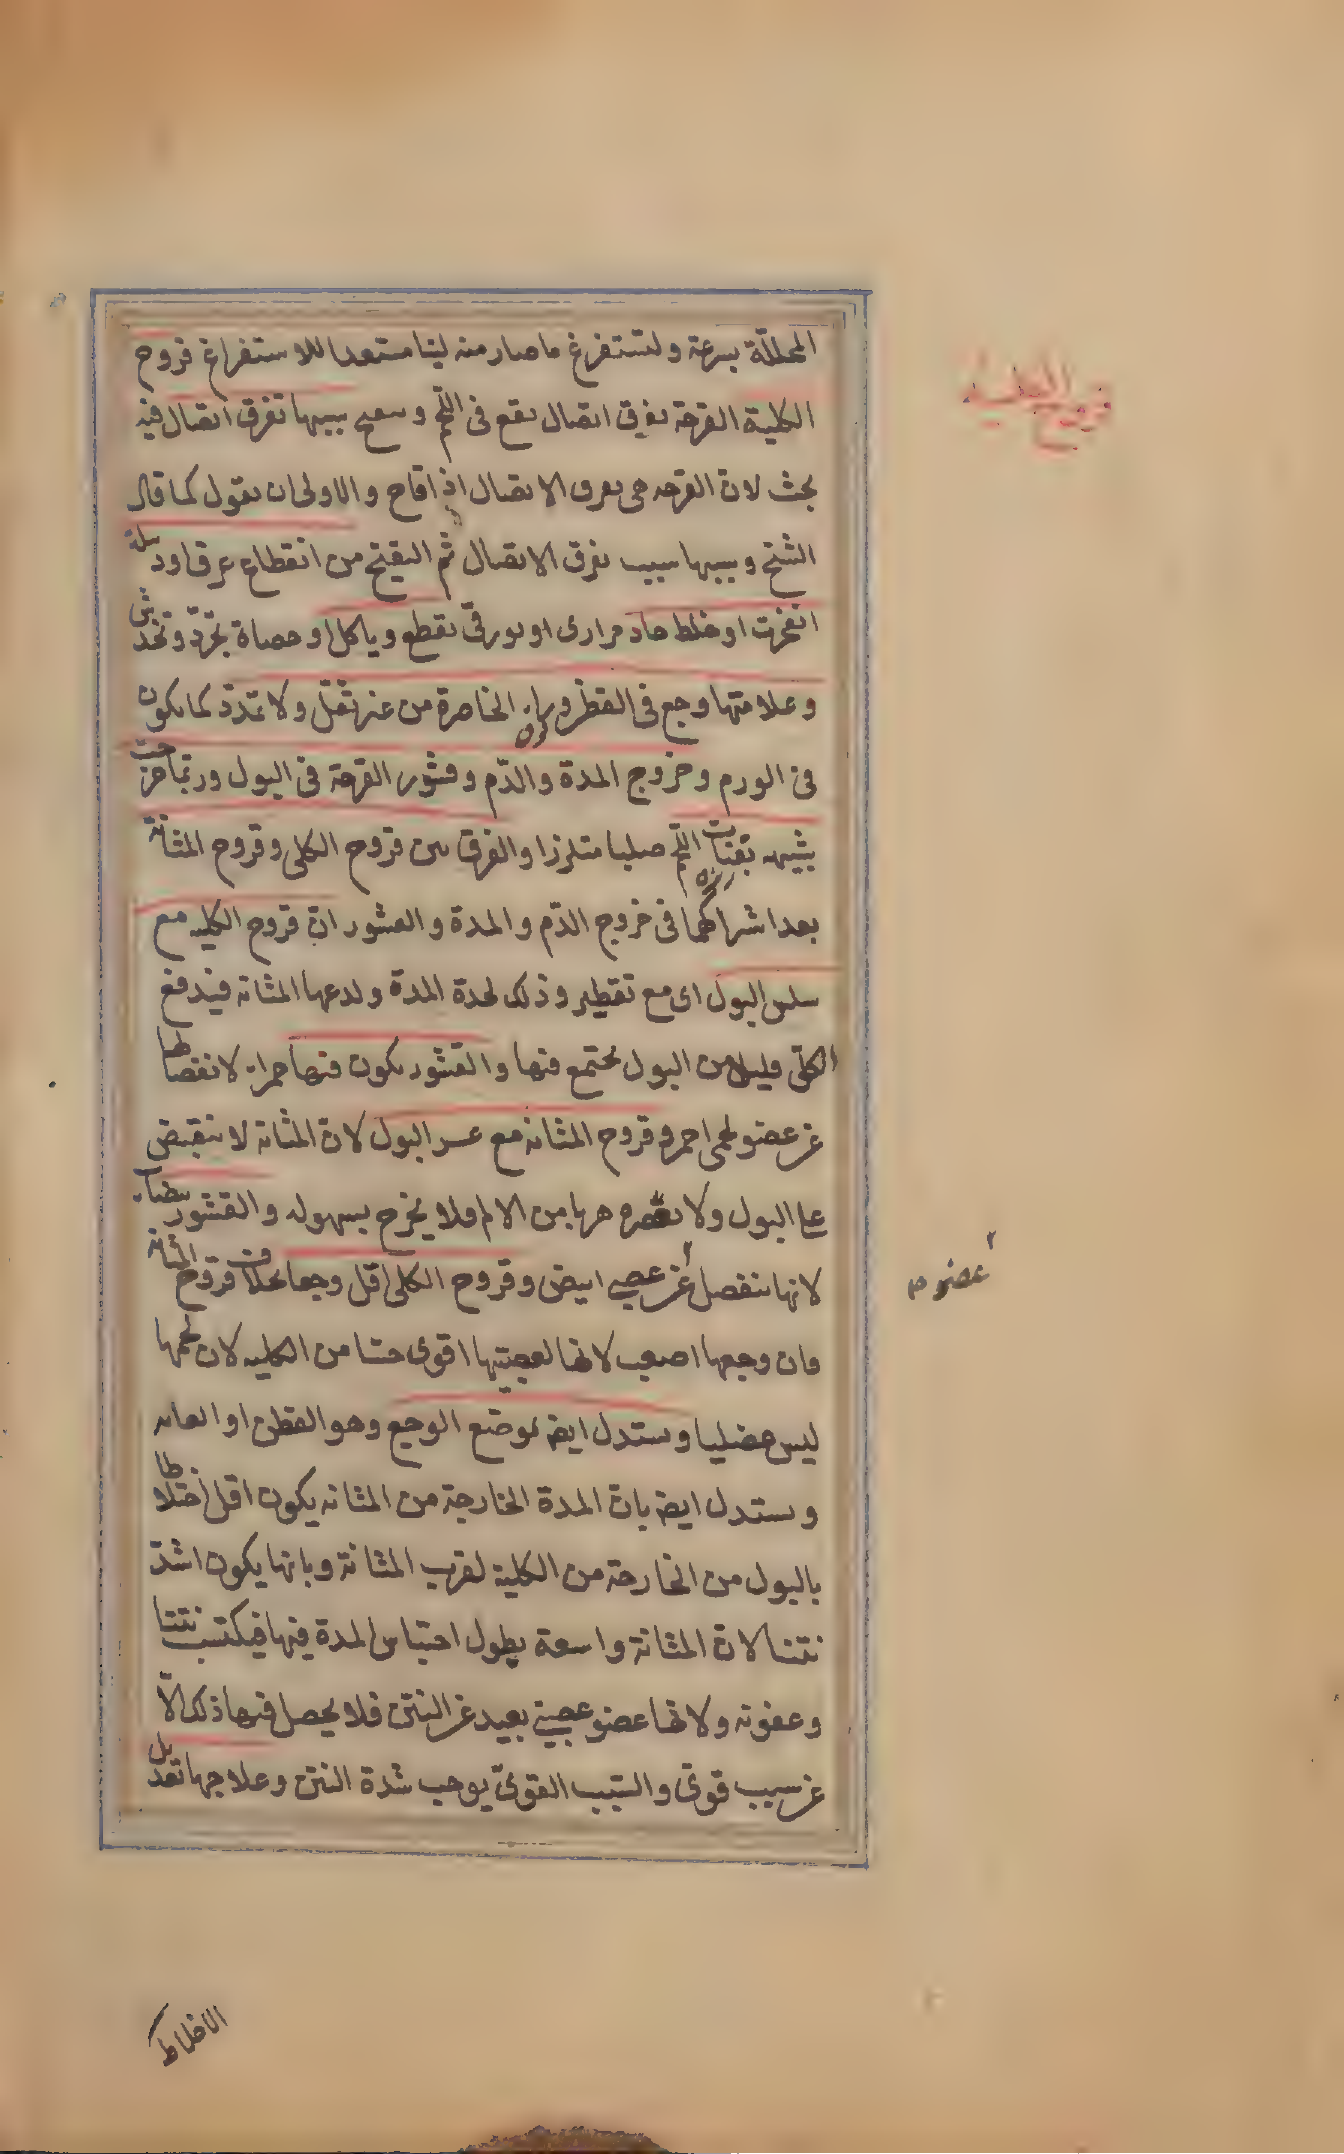 المحللّة بسرعة ولتستفرغ ما صار منه لينا مستعدا للاستفراغ قروح
قروح الكلية
الكلية القرحة تفرق اتصال تقع فى اللحم وتنفتح سببها تفرق اتصال فيه
بحث لان القرحه هى تفرق الاتصال اذا قاح والاولى ان يقول كما قال
الشيخ وسببها سبب تفرق الاتصال ثم التقيح من انقطاع عرق او دبيلة
انفجرت او خلط حاد مرارى او بورقى يقطع وياكل او حصاة تجرّد وتخدش
وعلامتها وجع فى القطن وراء الخاصرة من غير ثقل ولا تمدد كما يكون
فى الورم وخروج المدة والدّم وقشور القرحة فى البول وربّما خرجت
يشبه بفتات اللحم صلبا متلززا والفرق بين قروح الكلى وقروح المثانة
بعد اشتراكهما فى خروج الدّم والمدة والقشور انّ قروح الكليه مع
سلس البول اى مع تقطير وذلك لحدة المدة ولدعها المثانه فيدفع
الكلّى قليلا من البول يجتمع فيها والقشور يكون فيها حمراء لانفصالها
عن عضو لحمى احمر وقروح المثانه مع عسر البول لانّ المثانة لا تنقبض
على البول ولا تعصره هربا من الالم فلا يخرج بسهوله والقشور بيضاء
لانها تنفصل عن عصبى ابيض وقروح الكلى اقل وجعا بخلاف قروح المثانة
عضو
فان وجعها اصعب لانها لعصبيتها اقوى حسّا من الكليه لان لحمها
ليس عضليا ويستدل ايضا بموضع الوجع وهو القطن او العانه
ويستدل ايضا بان المدة الخارجة من المثانه يكون اقل اختلاطا
بالبول من الخارجة من الكلية لقرب المثانة وبانها يكون اشدّ
نتنا لانّ المثانة واسعة يطول احتباس المدة فيها فيكتسب نتنا
وعفونه ولانها عضو عصبى بعيد عن النتن فلا يحصل فيها ذلك الّا
عن سبب قوىّ والسّبب القوىّ يوجب شدة النتن وعلاجها تعديل
الاخلاط